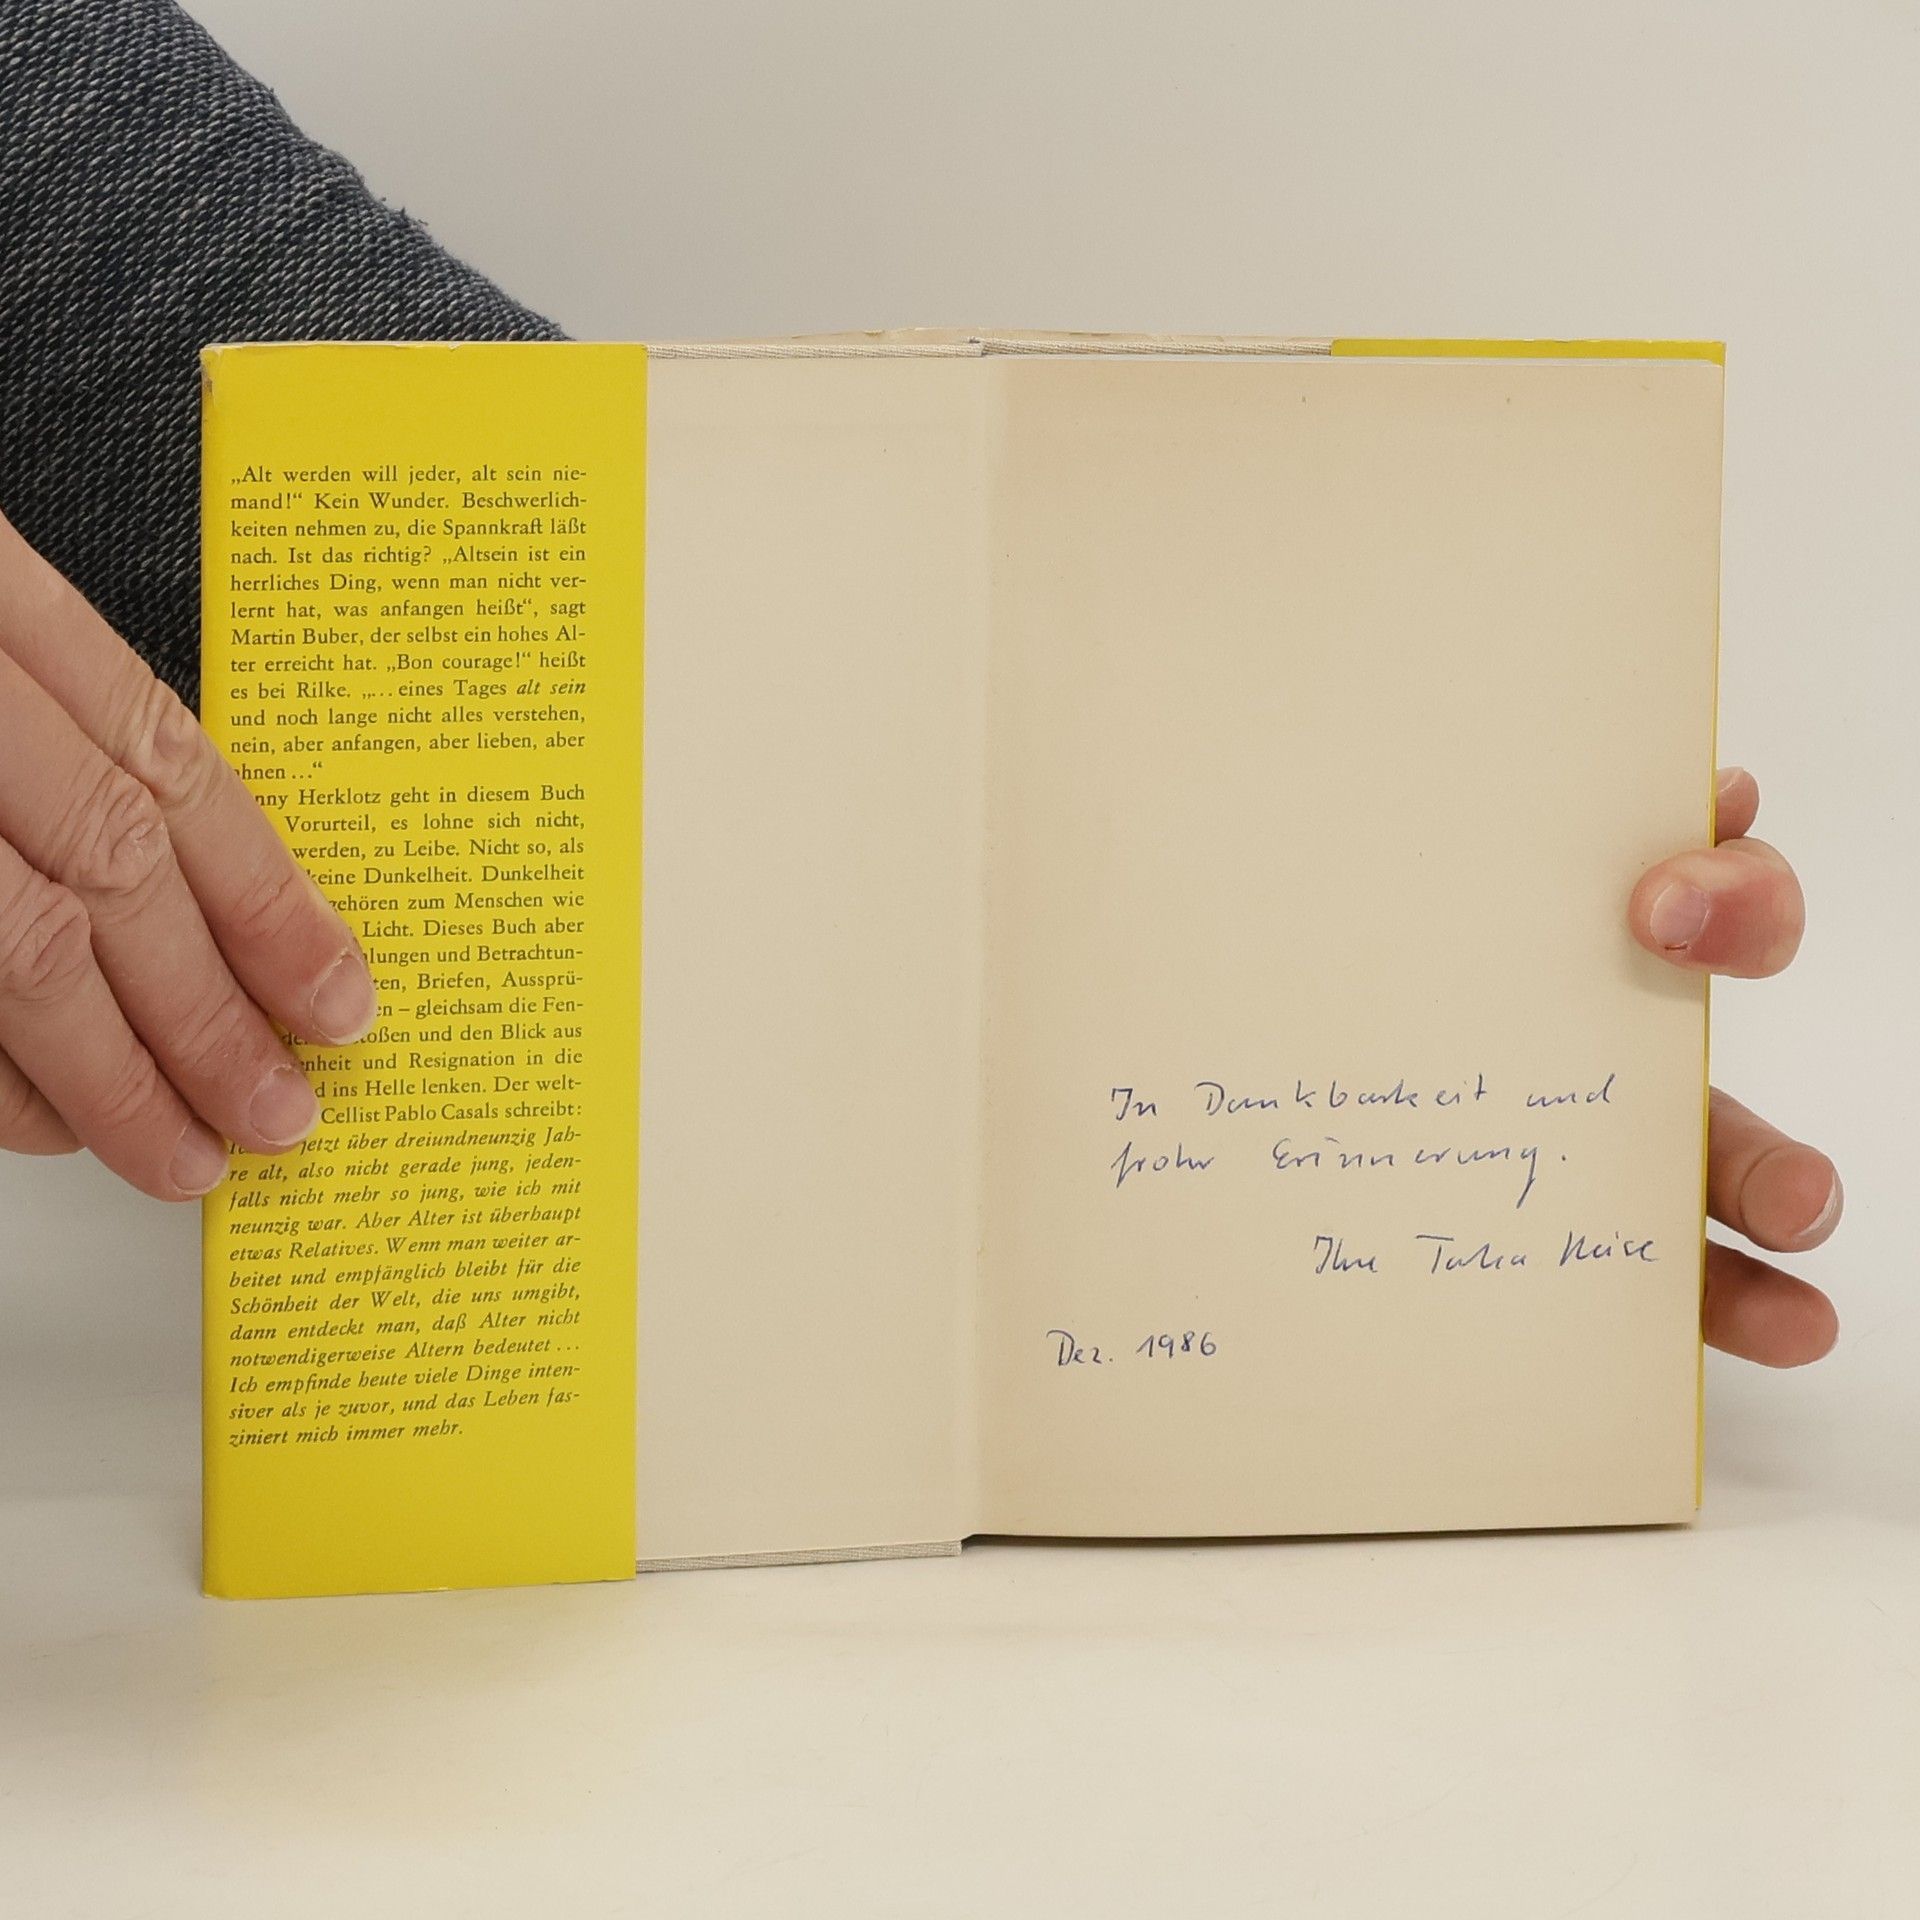 „Alt werden will jeder, alt sein nie-
mand!“ Kein Wunder. Beschwerlich-
keiten nehmen zu, die Spannkraft läßt
nach. Ist das richtig? „Altsein ist ein
herrliches Ding, wenn man nicht ver-
lernt hat, was anfangen heißt“, sagt
Martin Buber, der selbst ein hohes Al-
ter erreicht hat. „Bon courage!“ heißt
es bei Rilke. „... eines Tages alt sein
und noch lange nicht alles verstehen,
nein, aber anfangen, aber lieben, aber
ahnen ...“
nny Herklotz geht in diesem Buch
Vorurteil, es lohne sich nicht,
werden, zu Leibe. Nicht so, als
keine Dunkelheit. Dunkelheit
gehören zum Menschen wie
Licht. Dieses Buch aber
hlungen und Betrachtun-
ten, Briefen, Aussprü-
en – gleichsam die Fen-
toßen und den Blick aus
nheit und Resignation in die
d ins Helle lenken. Der welt-
Cellist Pablo Casals schreibt:
jetzt über dreiundneunzig Jah-
re alt, also nicht gerade jung, jeden-
falls nicht mehr so jung, wie ich mit
neunzig war. Aber Alter ist überhaupt
etwas Relatives. Wenn man weiter ar-
beitet und empfänglich bleibt für die
Schönheit der Welt, die uns umgibt,
dann entdeckt man, daß Alter nicht
notwendigerweise Altern bedeutet ...
Ich empfinde heute viele Dinge inten-
siver als je zuvor, und das Leben fas-
ziniert mich immer mehr.
In Dankbarkeit und
froher Erinnerung.
Ihre
Dez. 1986